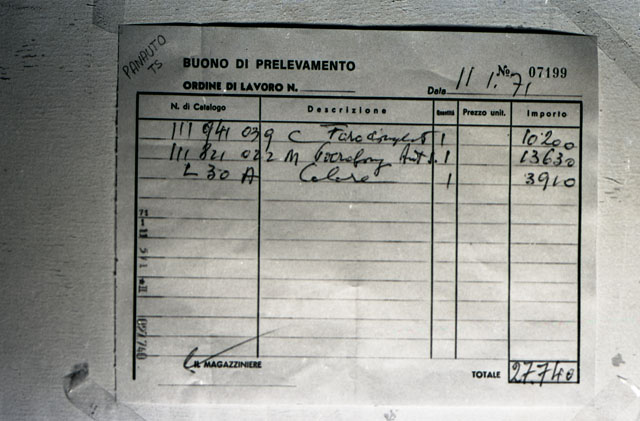 PANAUTO
TS
BUONO DI PRELEVAMENTO
ORDINE DI LAVORO N.
Data 11 1. 71 Nº 07199
N. di Catalogo Descrizione Quantità Prezzo unit. Importo
111 941 039 C 1 10200
111 821 022 M 1 13630
L 30 A Colore 1 3910
IL MAGAZZINIERE
TOTALE 27.740